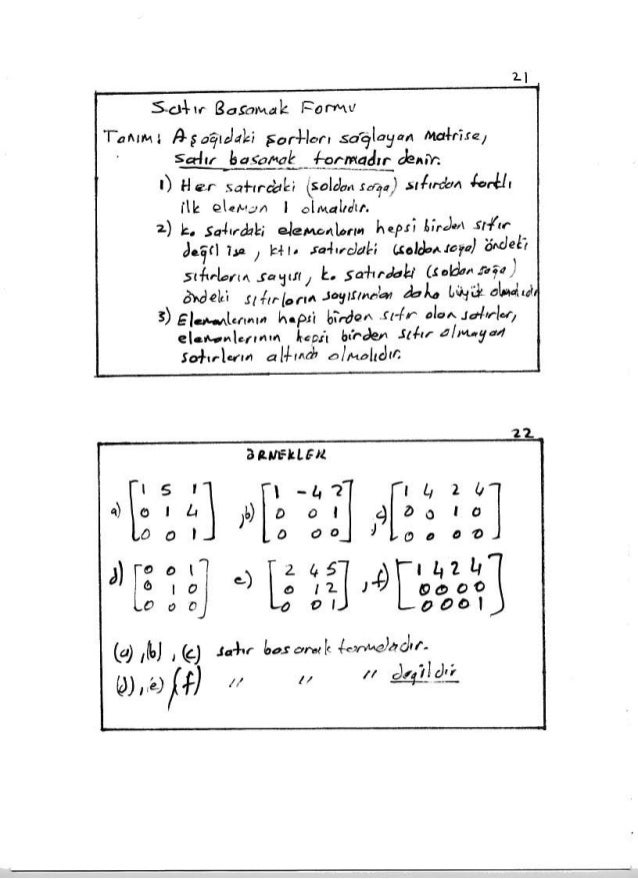 21
Satır Basamak Formu
Tanım: Aşağıdaki şartları sağlayan matrise,
satır basamak formadır denir.
1) Her satırdaki (soldan sağa) sıfırdan farklı
ilk eleman 1 olmalıdır.
2) k. satırdaki elemanların hepsi birden sıfır
değil ise, k+1. satırdaki (soldan sağa) öndeki
sıfırların sayısı, k. satırdaki (soldan sağa)
öndeki sıfırların sayısından daha büyük olmalıdır
3) Elemanlarının hepsi birden sıfır olan satırlar,
elemanlarının hepsi birden sıfır olmayan
satırların altında olmalıdır.
22
ÖRNEKLER
a) [1 5 1 ,b) [1 -4 2 ,c) [1 4 2 4
0 1 4 0 0 1 0 0 1 0
0 0 1] 0 0 0] 0 0 0 0]
d) [0 0 1 e) [2 4 5 ,f) [1 4 2 4
0 1 0 0 1 2 0 0 0 0
0 0 0] 0 0 1] 0 0 0 1]
(a), (b), (c) satır basamak formdadır.
(d), (e) (f) " " " değildir